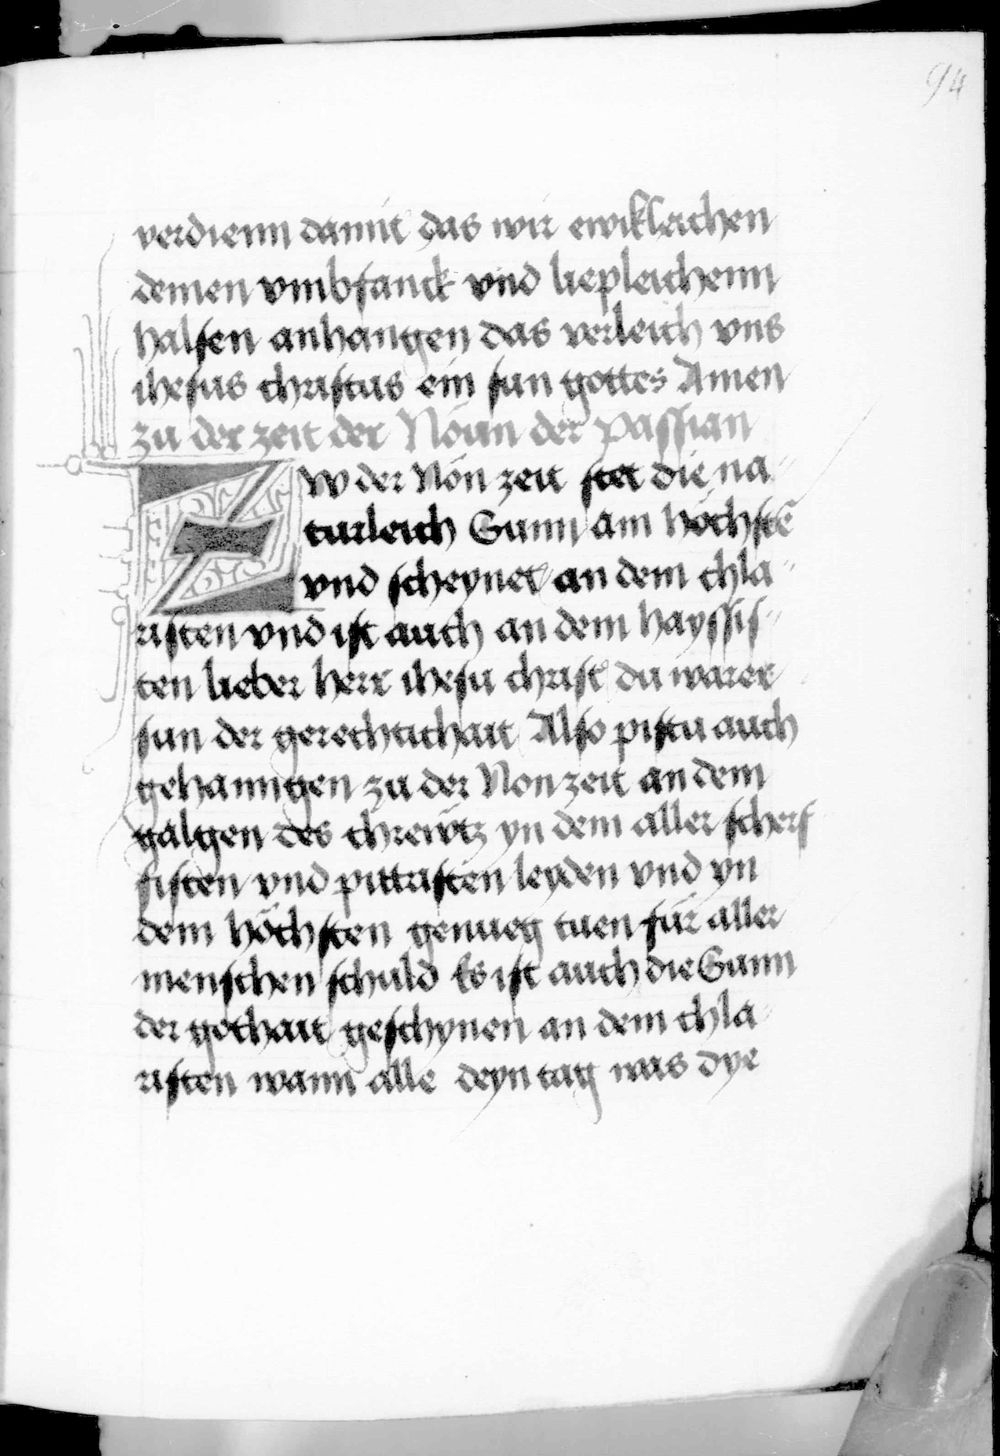 94
verdienn damit das wir ewikleichen
deinen vmbfanck vnd liepleichenn
halsen anhangen das verleich vns
ihesus christus ein sun gottes Amen
zu der zeit der Nonn der passian
Zw der Nön zeit stet die na-
turleich Sunn am höchstē
vnd scheynet an dem chla-
risten vnd ist auch an dem hayssis-
ten lieber herr ihesu christ du warer
sun der gerechtichait Also pistu auch
gehanngen zu der Non zeit an dem
galgen des chrewtz yn dem aller scherf
fisten vnd pittristen leyden vnd yn
dem höchsten genueg tuen für aller
menschen schuld Es ist auch die Sunn
der gothait geschynen an dem chla-
risten wann alle deyn tag was dye